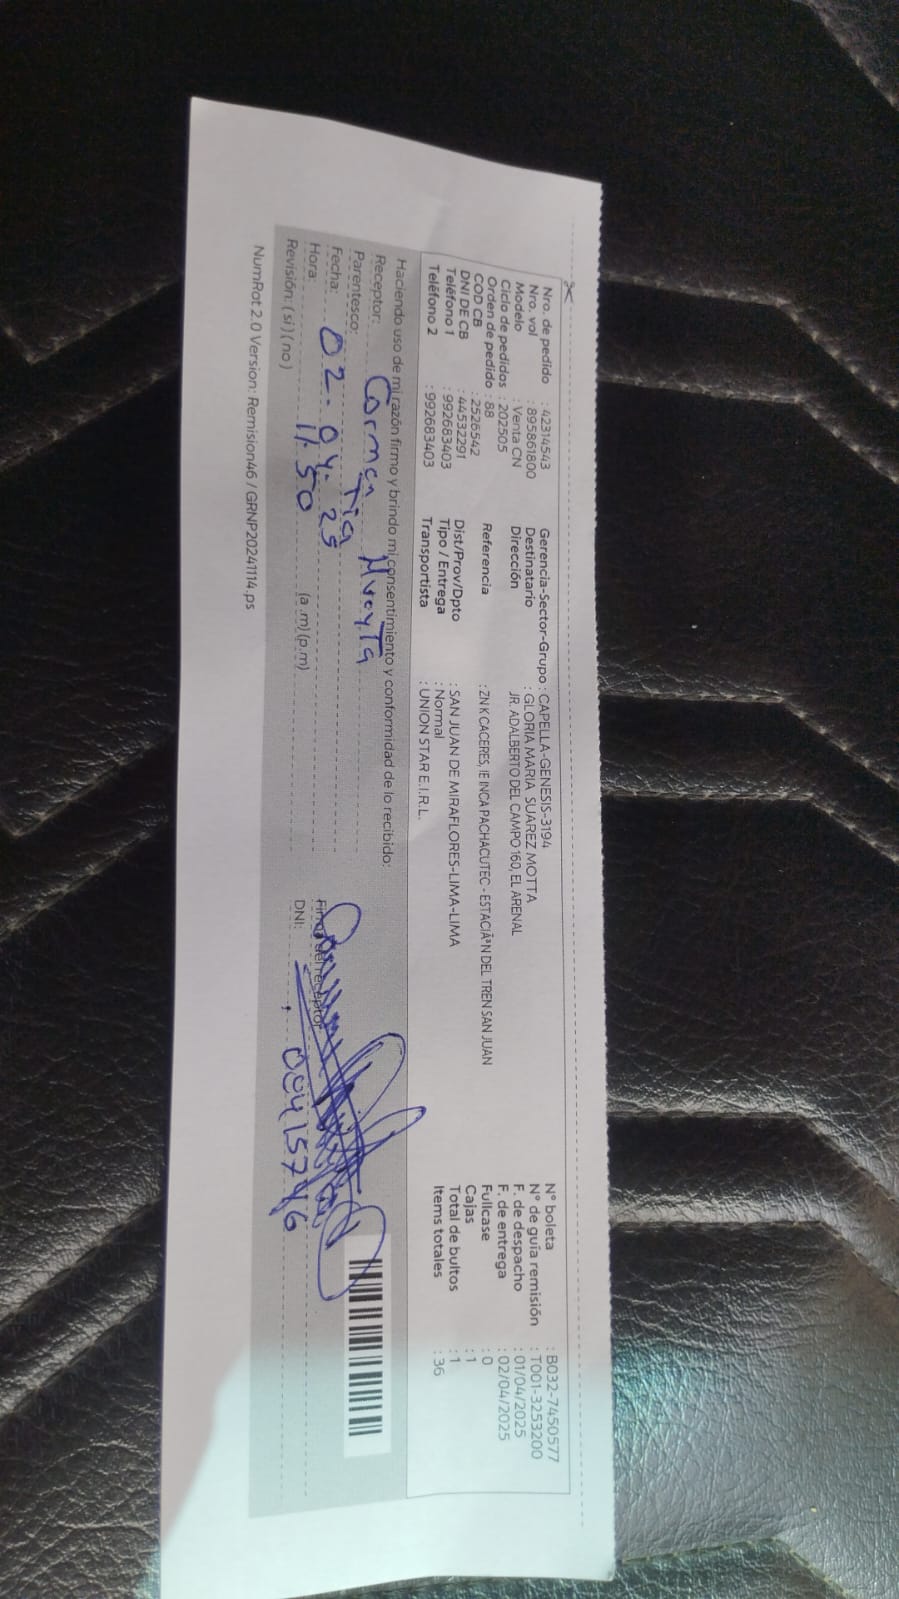 Nro. de pedido : 42314543
Nro. vol : 895861800
Modelo : Venta CN
Ciclo de pedidos : 202505
Orden de pedido : 88
COD CB : 2526542
DNI DE CB : 44532291
Teléfono 1 : 992683403
Teléfono 2 : 992683403
Gerencia-Sector-Grupo : CAPELLA-GENESIS-3194
Destinatario : GLORIA MARIA SUAREZ MOTTA
Dirección JR. ADALBERTO DEL CAMPO 160, EL ARENAL
Referencia : ZN K CACERES, IE INCA PACHACUTEC - ESTACIÃ³N DEL TREN SAN JUAN
Dist/Prov/Dpto : SAN JUAN DE MIRAFLORES-LIMA-LIMA
Tipo / Entrega : Normal
Transportista : UNION STAR E.I.R.L.
N° boleta : B032-7450577
N° de guía remisión : T001-3253200
F. de despacho : 01/04/2025
F. de entrega : 02/04/2025
Fullcase : 0
Cajas : 1
Total de bultos : 1
Items totales : 36
Haciendo uso de mi razón firmo y brindo mi consentimiento y conformidad de lo recibido:
Receptor: Carmen
Parentesco: Tia
Fecha: 02.04.25
Hora: 11:50 (a .m) (p.m)
Revisión: (si) (no)
Firma del receptor
DNI: 00415746
NumRot 2.0 Version: Remision46 / GRNP20241114.ps